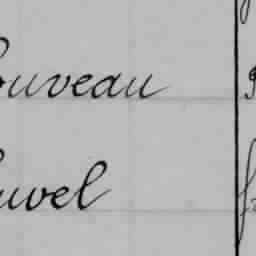 ouveau
uvel